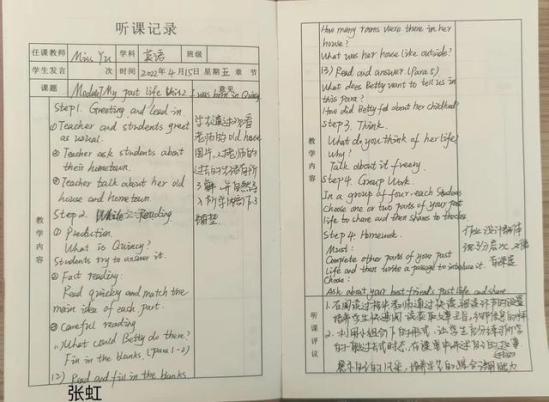 听课记录
任课教师 Miss Yu 学科 英语 班级
学生发言 次 时间 2022年4月15日 星期五 章 节
课题 Module7 My past life Unit2 I was born in Quincy.
教学内容
意见
Step1. Greeting and lead in
① Teacher and students greet
as usual.
② Teacher ask students about
their hometown.
③ Teacher talk about her old
house and hometown.
Step2. While-Reading
① Prediction
What is Quincy?
Students try to answer it.
② Fast reading:
Read quickly and match the
main idea of each part.
③ Careful reading
1) What could Betty do there?
Fin in the blanks. (para 1-2)
12) Read and fin in the blanks
老师的old house
图片,
张虹
How many rooms were there in her
house?
What was her house like outside?
13) Read and answer (Para 5)
What does Betty want to tell us in
this para?
How did Betty fel about her childhood?
教学内容
Step3. Think.
What do you think of her life?
Why?
Talk about it freery.
Step4. Group Work.
In a group of four, each students
choose one or two parts of your past
life to share and then shares to the class
Step4. Homework.
Must:
Complete other parts of your past
life and then write a passage to introduce it.
Choose:
Ask about your best friend's past life and share
作业设计
听课评议
1. 在阅读过程中老师通过快读、细读环节的设置
2. 利用小组合作的形式, 让学生充分练习所学
的一般过去式时态,